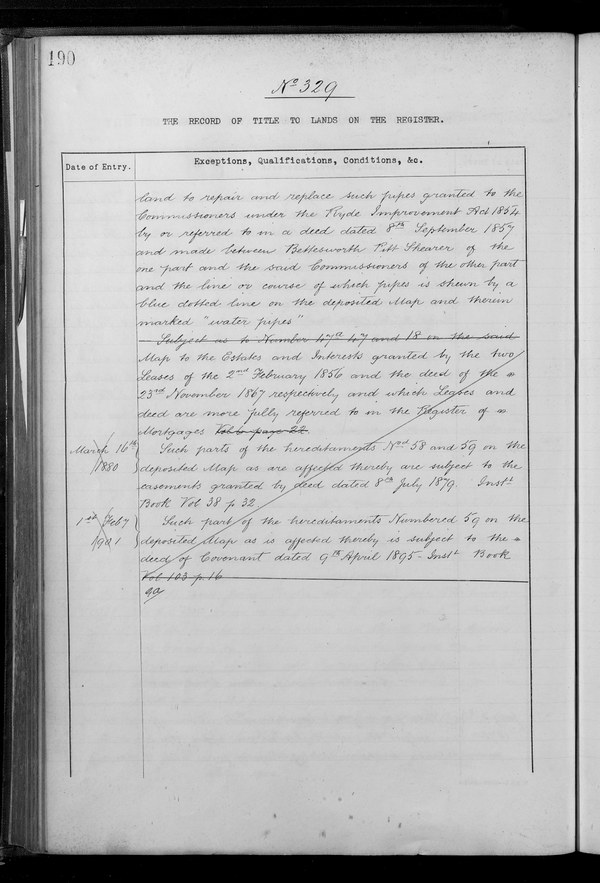 190
No 329
THE RECORD OF TITLE TO LANDS ON THE REGISTER.
Date of Entry.
Exceptions, Qualifications, Conditions, &c.
land to repair and replace such pipes granted to the
Commissioners under the Ryde Improvement Act 1854
by or referred to in a deed dated 8th September 1857
and made between Bettesworth Pitt Shearer of the
one part and the said Commissioners of the other part
and the line or course of which pipes is shewn by a
blue dotted line on the deposited Map and therein
marked "water pipes"
Subject as to Number 47a 47 and 18 on the said
Map to the Estates and Interests granted by the two
Leases of the 2nd February 1856 and the deed of the
23rd November 1867 respectively and which Leases and
deed are more fully referred to in the Register of
Mortgages Vol 6 page 22.
March 16th
1880
Such parts of the hereditaments Nos 58 and 59 on the
deposited Map as are affected thereby are subject to the
easements granted by deed dated 8th July 1879. Inst
Book Vol 38 p 32
1st Feby
1901
Such part of the hereditaments Numbered 59 on the
deposited Map as is affected thereby is subject to the
deed of Covonant dated 9th April 1895 - Inst Book
Vol 103 p. 16